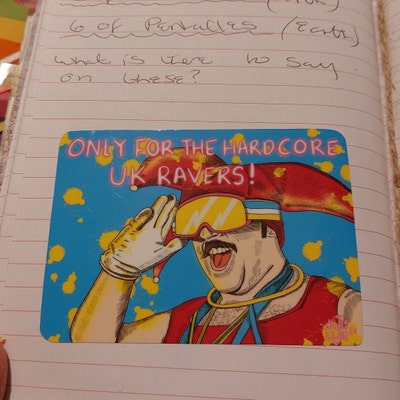 6 of Pentacles (Earth)
What is there to say
on these?
ONLY FOR THE HARDCORE
UK RAVERS!